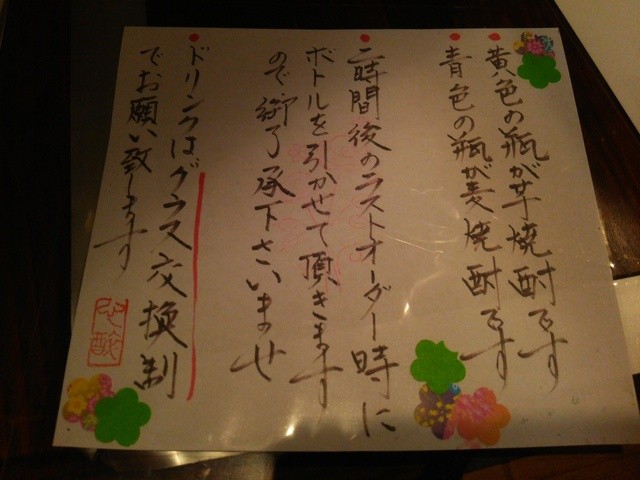 黄色の瓶が芋焼酎です
青色の瓶が麦焼酎です
二時間後のラストオーダー時に
ボトルを引かせて頂きます
ので御了承下さいませ
ドリンクはグラス交換制
でお願い致します